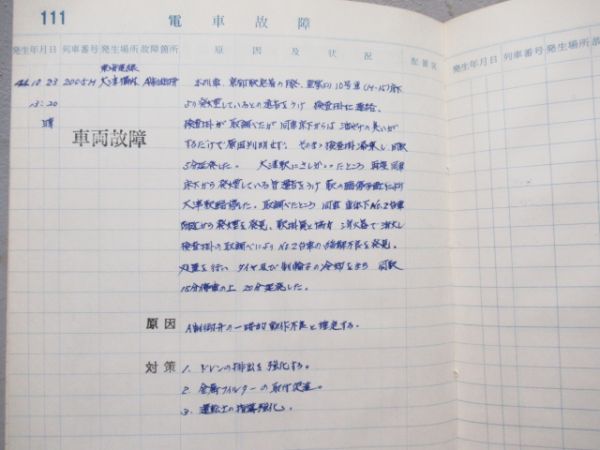 111 電車故障
発生年月日 列車番号 発生場所 故障箇所 原因及状況 配置区 発生年月日 列車番号 発生場所 故
東海道線
44.10.23 2005M 大津構内 A制御弁 本列車、京都駅発車の際、車掌より10号車(M-15)床下
13:20 より発煙しているとの通告をうけ検査掛に連絡、
晴 検査掛が取調べたが同車床下からは油やけの臭いが
車両故障 するだけで原因判明せず、そのまゝ検査掛添乗し同駅
5分延発した。 大津駅にさしかゝったところ 再度 同車
床下から発煙している旨通告をうけ 駅の臨停手配により
大津駅臨停した。取調べたところ 同車 車体下No.2台車
附近から発煙を発見、駅掛員と 消火器で消火し
検査掛の取調べによりNo.2台車の緩解不良を発見。
処置を行い タイヤ及び制輪子の冷却を待ち 同駅
15分停車の上 20分延発した。
原因 A制御弁の一時的動作不良と推定する。
対策 1. ドレンの排出を強化する。
2. 金属フィルターの取付促進。
3. 運転士の指導強化。